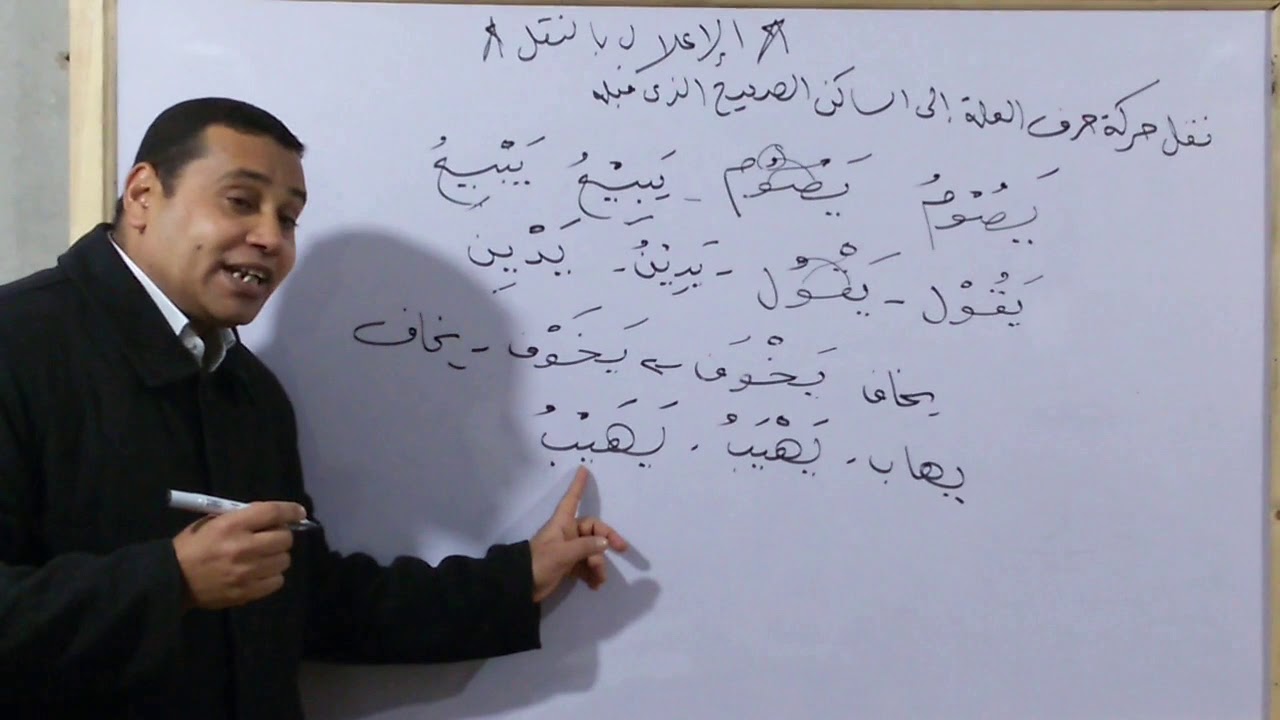 الإعلال بالنقل
نقل حركة حرف العلة إلى الساكن الصحيح الذى قبله
يَصُوْمُ يَصْوُم - يَبِيْعُ يَبْيِعُ
يَقُوْل - يَقْوُل - يَدِيْنُ - يَدْيِنُ
يخاف يَخْوَف ← يَخَوْف - يخاف
يهاب - يَهْيَبُ - يَهَيْبُ